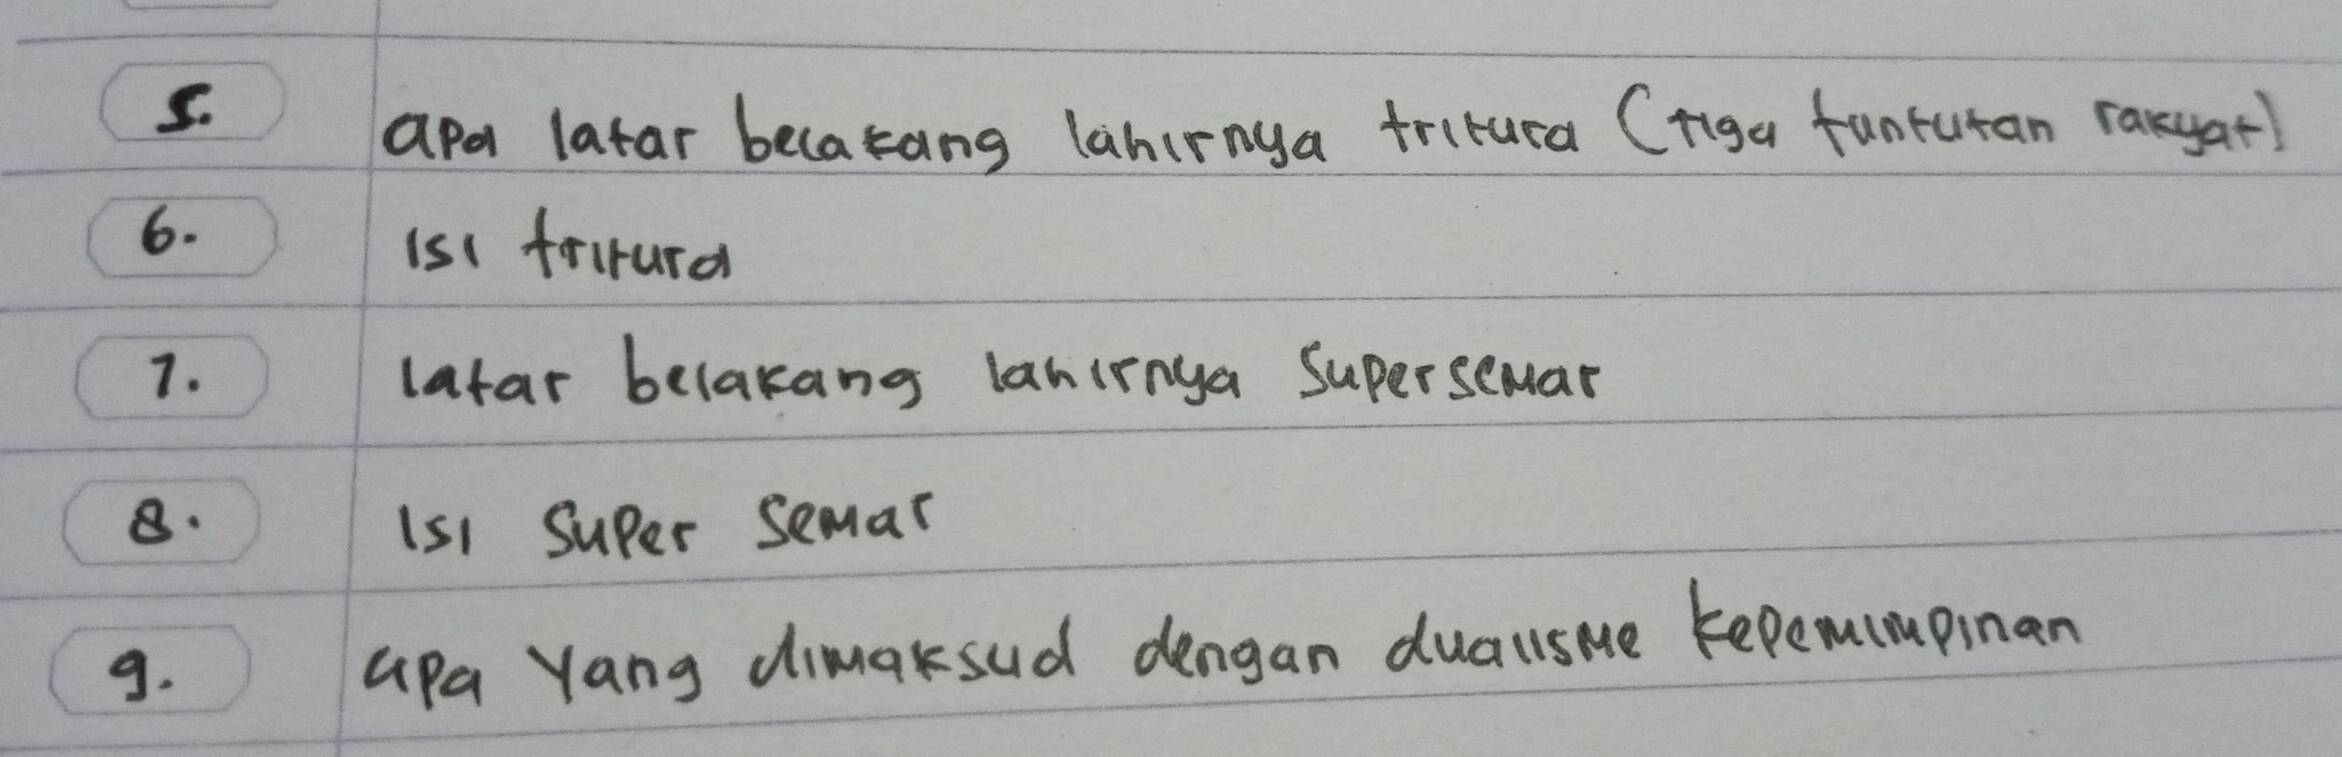 5. apa latar belakang lahirnya tritura (tiga tuntutan rakyat)
6. isi tritura
7. latar belakang lahirnya Supersemar
8. isi super semar
9. apa yang dimaksud dengan dualisme kepemimpinan